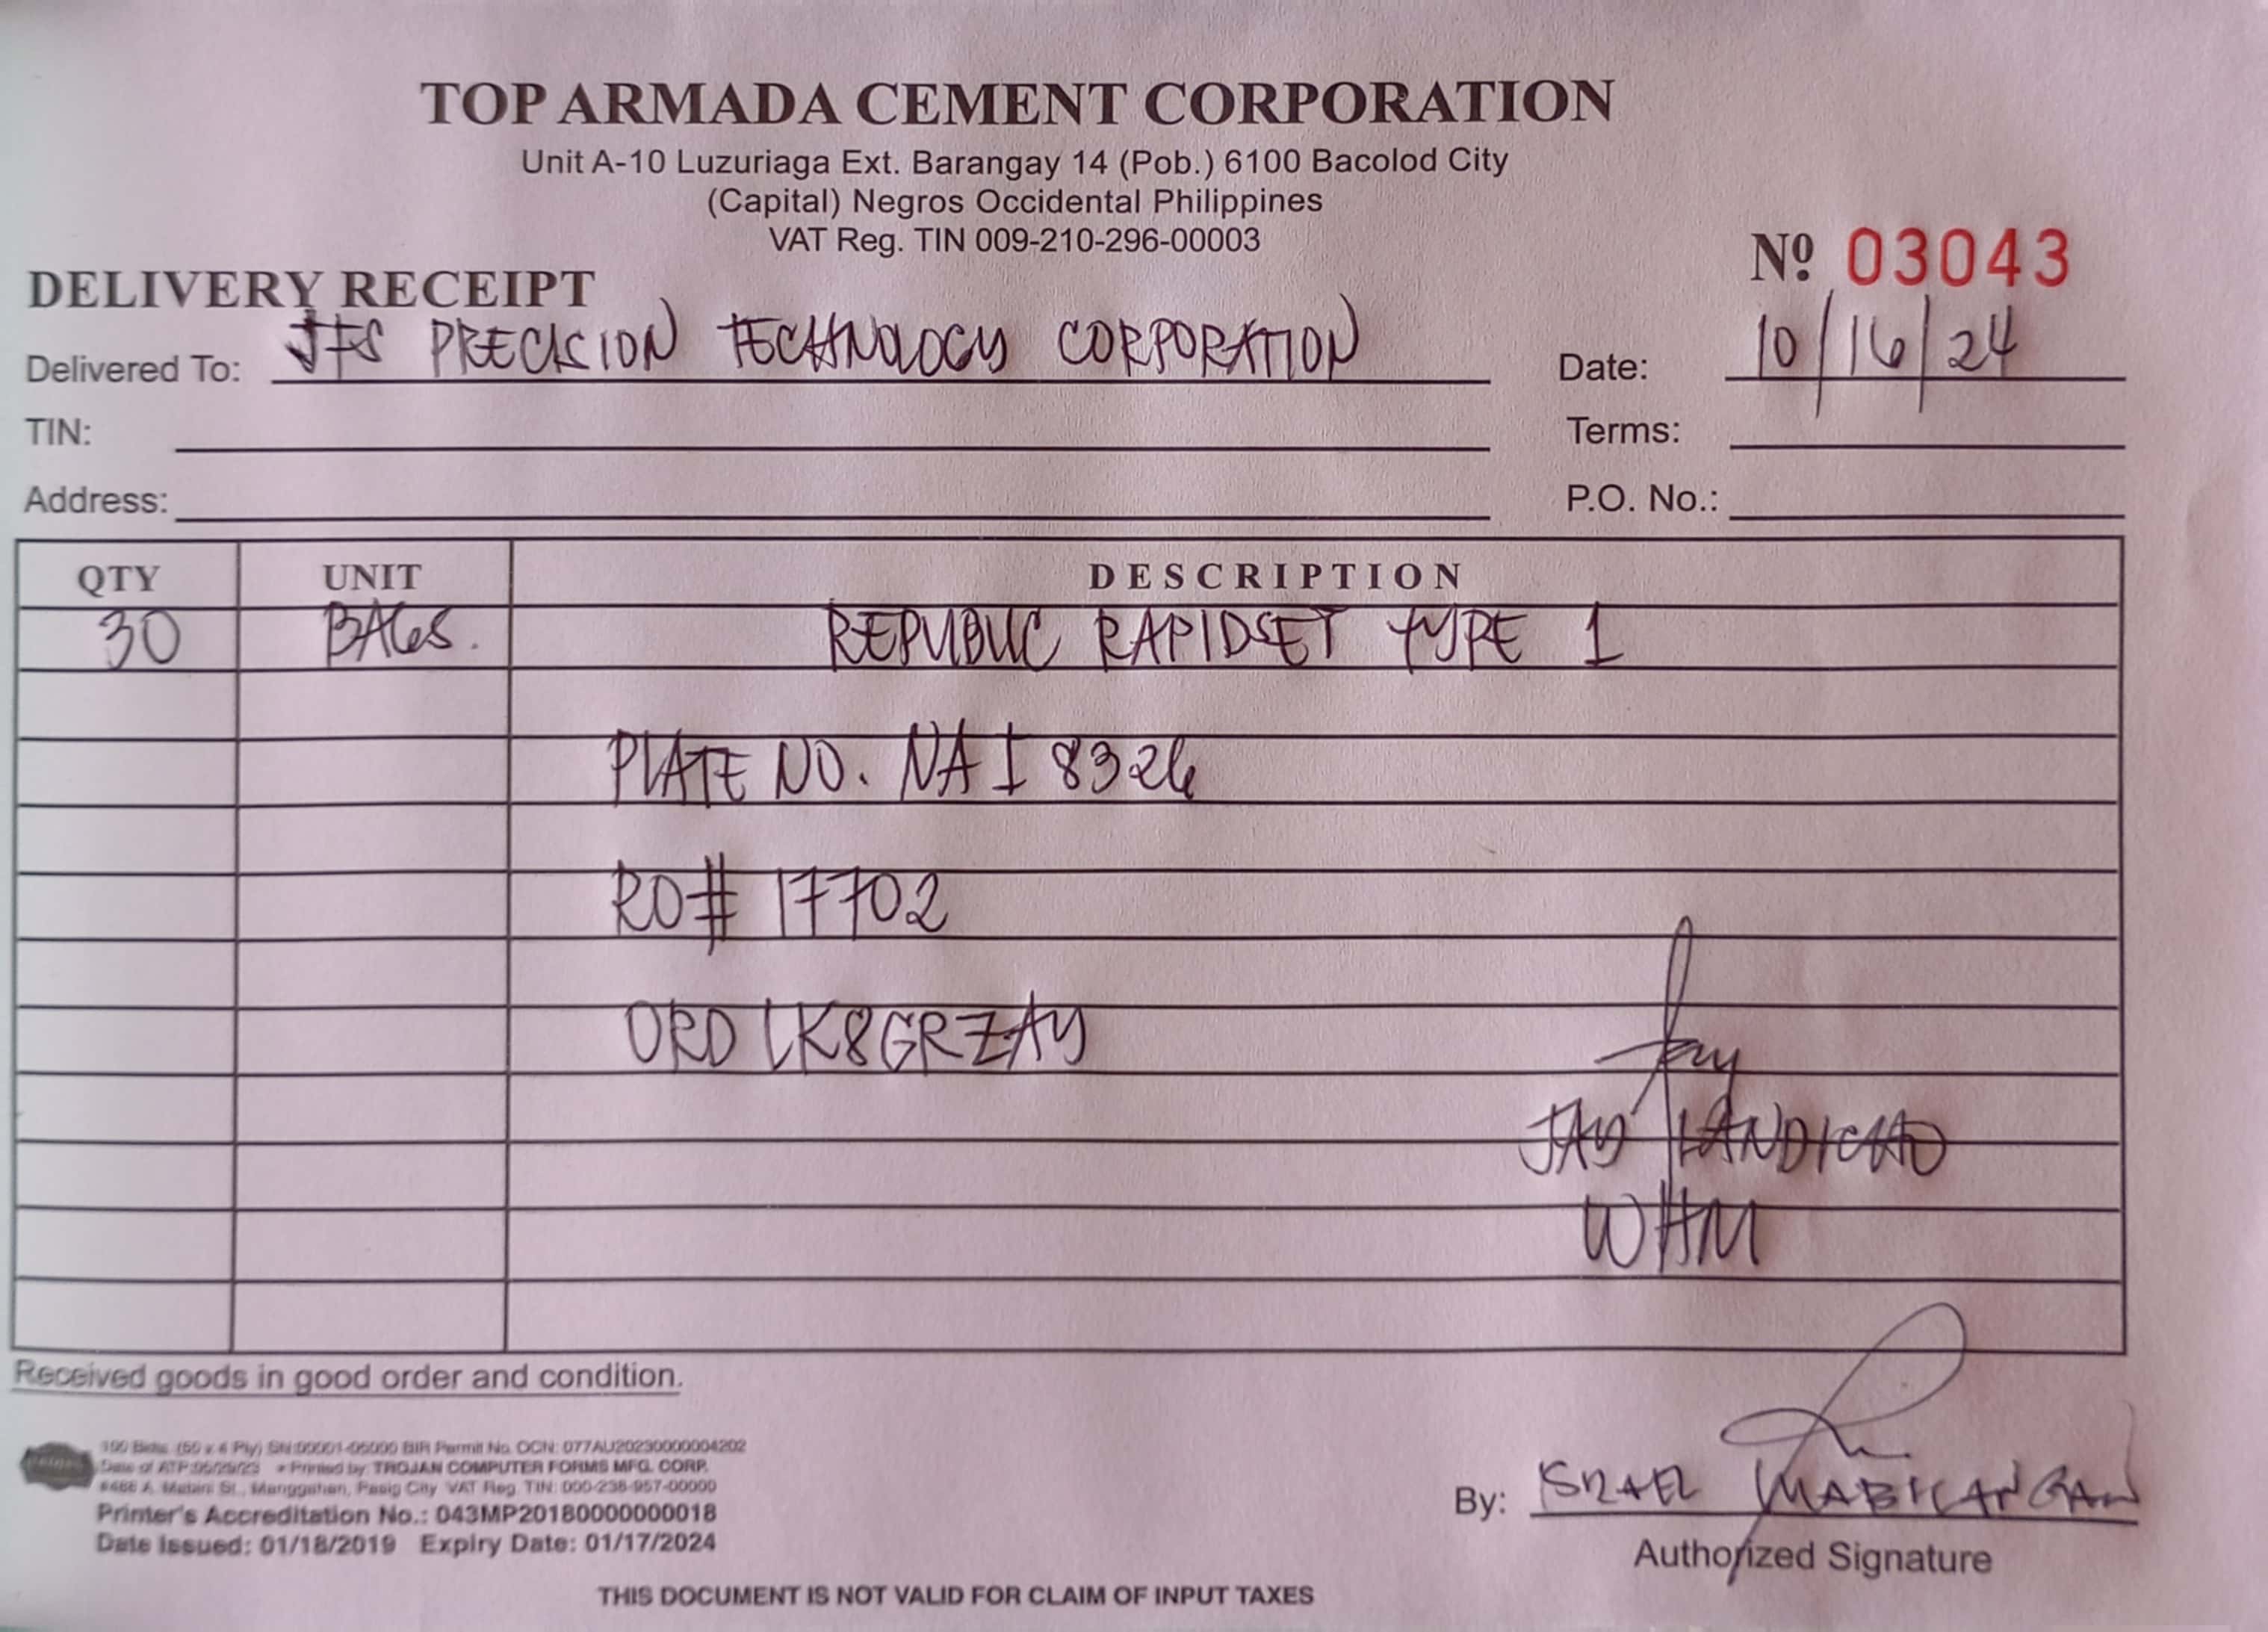 TOP ARMADA CEMENT CORPORATION
Unit A-10 Luzuriaga Ext. Barangay 14 (Pob.) 6100 Bacolod City
(Capital) Negros Occidental Philippines
VAT Reg. TIN 009-210-296-00003
Nº 03043
DELIVERY RECEIPT
Delivered To: JFS PRECISION TECHNOLOGY CORPORATION
Date: 10/16/24
TIN:
Terms:
Address:
P.O. No.:
QTY UNIT DESCRIPTION
30 BAGS. REPUBLIC RAPIDSET TYPE 1
PLATE NO. NAI 8326
RO# 17702
ORD LK8GRZAY
Jay
JAY LANDICHO
WHM
Received goods in good order and condition.
100 Bklts. (50 x 4 Ply) SN:00001-05000 BIR Permit No. OCN: 077AU20230000004202
Date of ATP: • Printed by: TROJAN COMPUTER FORMS MFG. CORP.
Manggahan, Pasig City VAT Reg. TIN: 000-238-957-00000
Printer's Accreditation No.: 043MP20180000000018
Date Issued: 01/18/2019 Expiry Date: 01/17/2024
By: ISRAEL MABILANGAN
Authorized Signature
THIS DOCUMENT IS NOT VALID FOR CLAIM OF INPUT TAXES